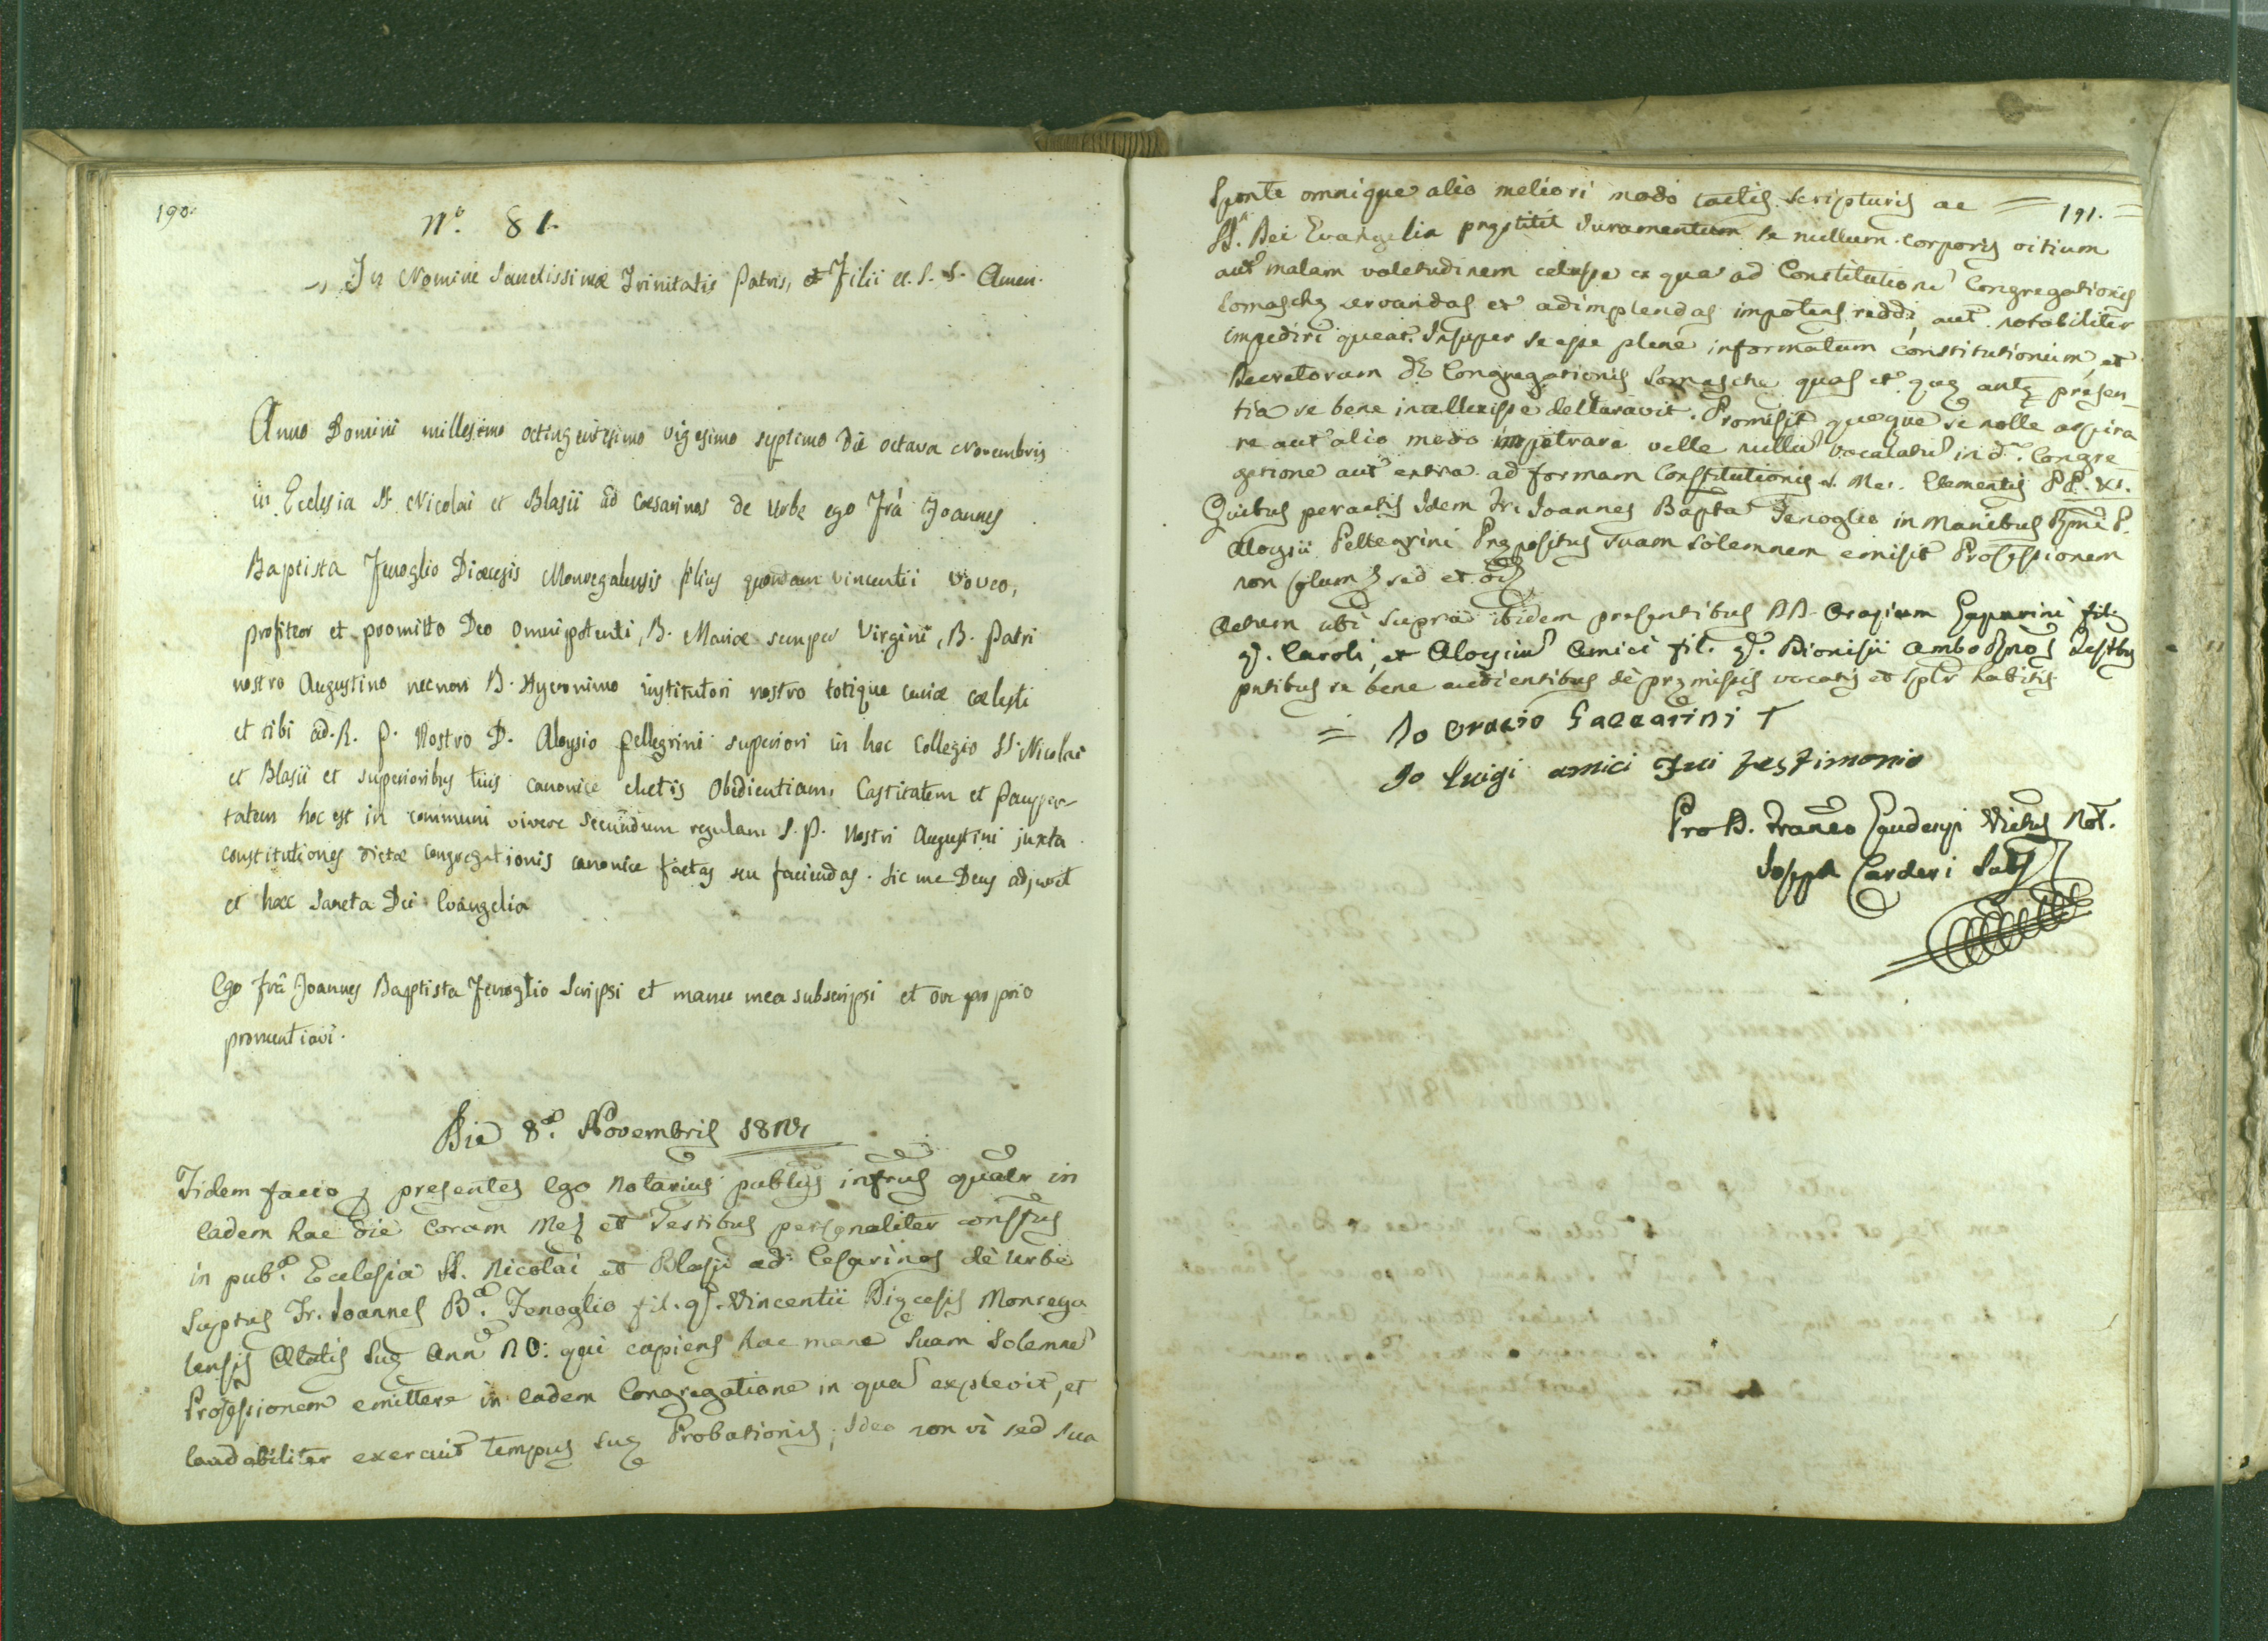 190.
N.º 81.
In Nomine Sanctissimæ Trinitatis Patris, et Filii et S. S. Amen.
Anno Domini millesimo octingentesimo vigesimo septimo die octava Novembris
in Ecclesia SS. Nicolai et Blasii ad Cæsarinos de Urbe ego Frà Joannes
Baptista Fenoglio Diæcesis Monregalensis filius quondam Vincentii voveo,
profiteor et promitto Deo omnipotenti, B. Mariæ semper Virgini, B. Patri
nostro Augustino necnon B. Hyeronimo institutori nostro totique curiæ cælesti
et tibi ad. R. P. Nostro D. Aloysio Pellegrini superiori in hoc Collegio SS. Nicolai
et Blasii et superioribus tuis canonice electis Obedientiam, Castitatem et Pauper-
tatem hoc est in communi vivere secundum regulam S. P. Nostri Augustini juxta
constitutiones dictæ congregationis canonice factas seu faciendas. Sic me Deus adjuvet
et hæc Sancta Dei Evangelia
Ego frà Joannes Baptista Fenoglio scripsi et manu mea subscripsi et ore proprio
pronuntiavi.
Die 8ª. Novembris 1827
Fidem facio p presentes Ego Notarius publus infrus qualr in
Eadem hac die Coram Me et Testibus personaliter constus
in pubª. Ecclesia SS. Nicolai et Blasii ad Cesarinos de Urbe
Suptus Fr. Joannes Bª. Fenoglio fil. q. Vincentii Diecesis Monrega
lensis Ætatis Sue Ann 20: qui cupiens hac mane Suam Solemne
Professionem emittere in eadem Congregatione in qua explevit, et
laudabiliter exercuit tempus sue Probationis; Ideo non vi sed sua
Sponte omnique alio meliori modo tactis Scripturis ac = 191. =
SS. Dei Evangelia prestitit Juramentum se nullum corporis vitium
aut malam valetudinem celasse ex qua ad Constitutione Congregationis
Somasche servandas et adimplendas impotens reddi, aut notabiliter
impediri queat. Insuper se esse plene informatum constitutionum, et
Decretorum de Congregationis Somasche quas et que ante presen-
tia se bene intellexisse declaravit. Promisit queque se nolle aspira
re aut alio modo impetrare velle nullu vocalatu in d. Congre
gatione aut extra ad formam Constitutionis S. Me. Clementis PP. XI.
Quibus peractis Idem Fr. Joannes Bapta Fenoglio in Manibus Rmi P.
Aloysii Pellegrini Prepositus suam solemnem emisit Professionem
non solum sed et
Actum ubi supra ibidem presentibus DD. Orazium Gaparini fil.
q. Caroli, et Aloysiu Amici fil. q. Dionisii ambo Rnos Testbus
pntibus se bene audientibus de premissis vocatis et splr habitis
= Io Orazio Gaccarini †
Io Luigi amici Fui testimonio
Pro D. Franco Gaudenzi Vicus Not.
Joseph Carderi Subs